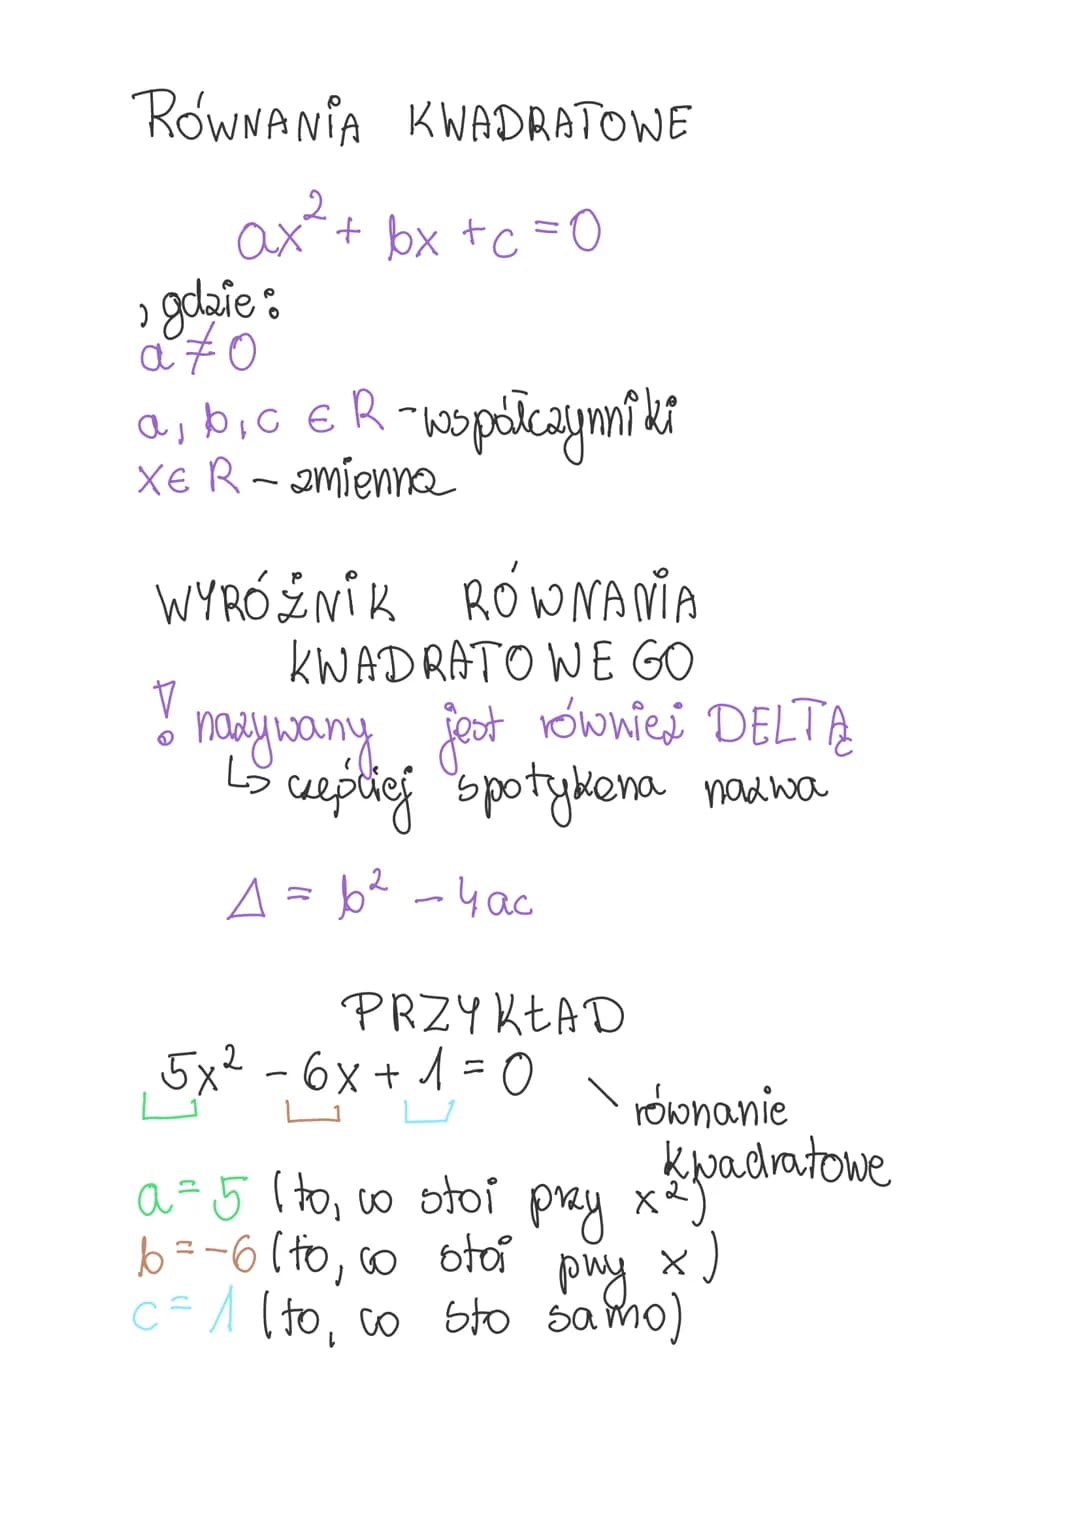 RÓWNANIA KWADRATOWE
ax² + bx + c = 0
, gdzie:
a ≠ 0
a, b, c ∈ R - współczynniki
x ∈ R - zmienna
WYRÓŻNIK RÓWNANIA
KWADRATOWEGO
! nazywany jest również DELTĄ
↳ częściej spotykana nazwa
Δ = b² - 4ac
PRZYKŁAD
5x² - 6x + 1 = 0
\ równanie
kwadratowe
a = 5 (to, co stoi przy x²)
b = -6 (to, co stoi przy x)
c = 1 (to, co sto samo)